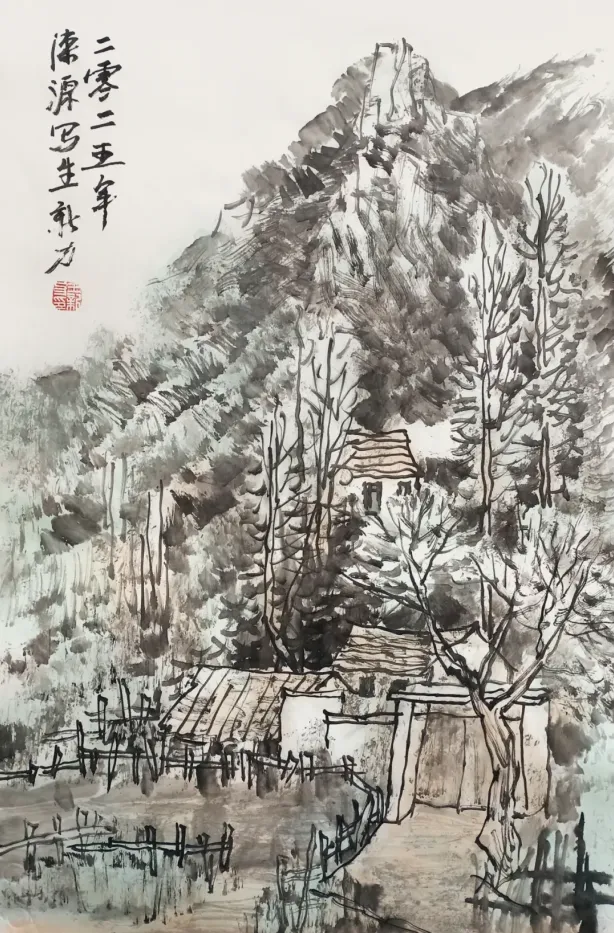 二零二五年
涞源写生 新力